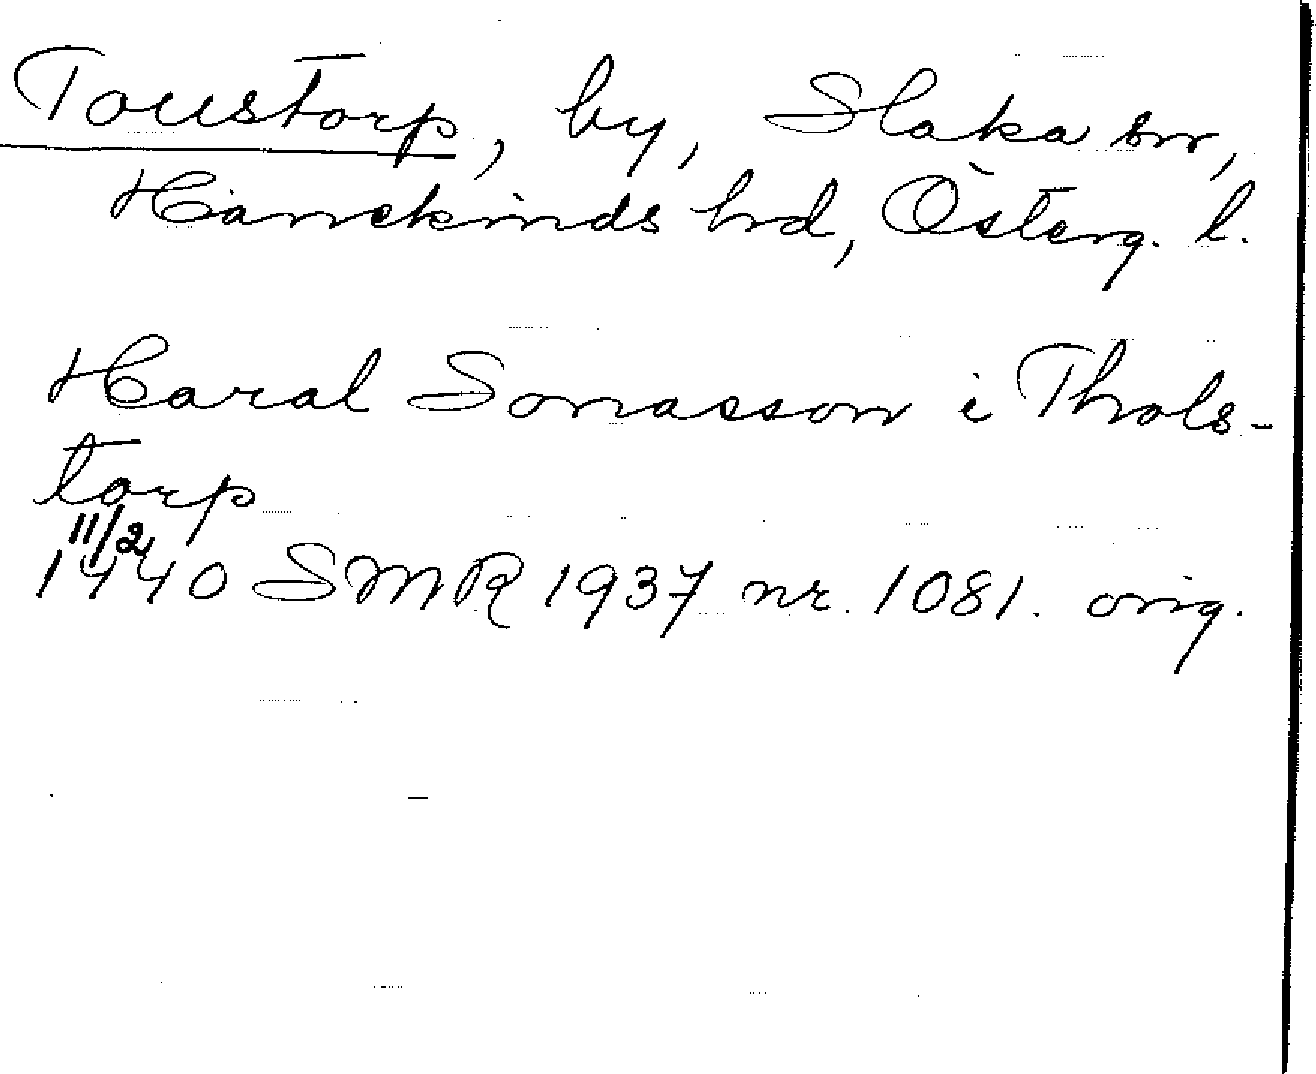 Tollstorp, by, Slaka sn,
Hanekinds hd, Österg. l.
Haral Sonasson i Thols-
torp
11/2
1440 SMR 1937 nr. 1081. orig.